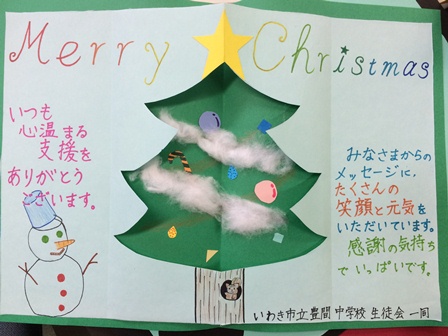 Merry Christmas
いつも
心温まる
支援を
ありがとう
ございます。
みなさまからの
メッセージに、
たくさんの
笑顔と元気を
いただいています。
感謝の気持ち
でいっぱいです。
いわき市立豊間中学校 生徒会一同